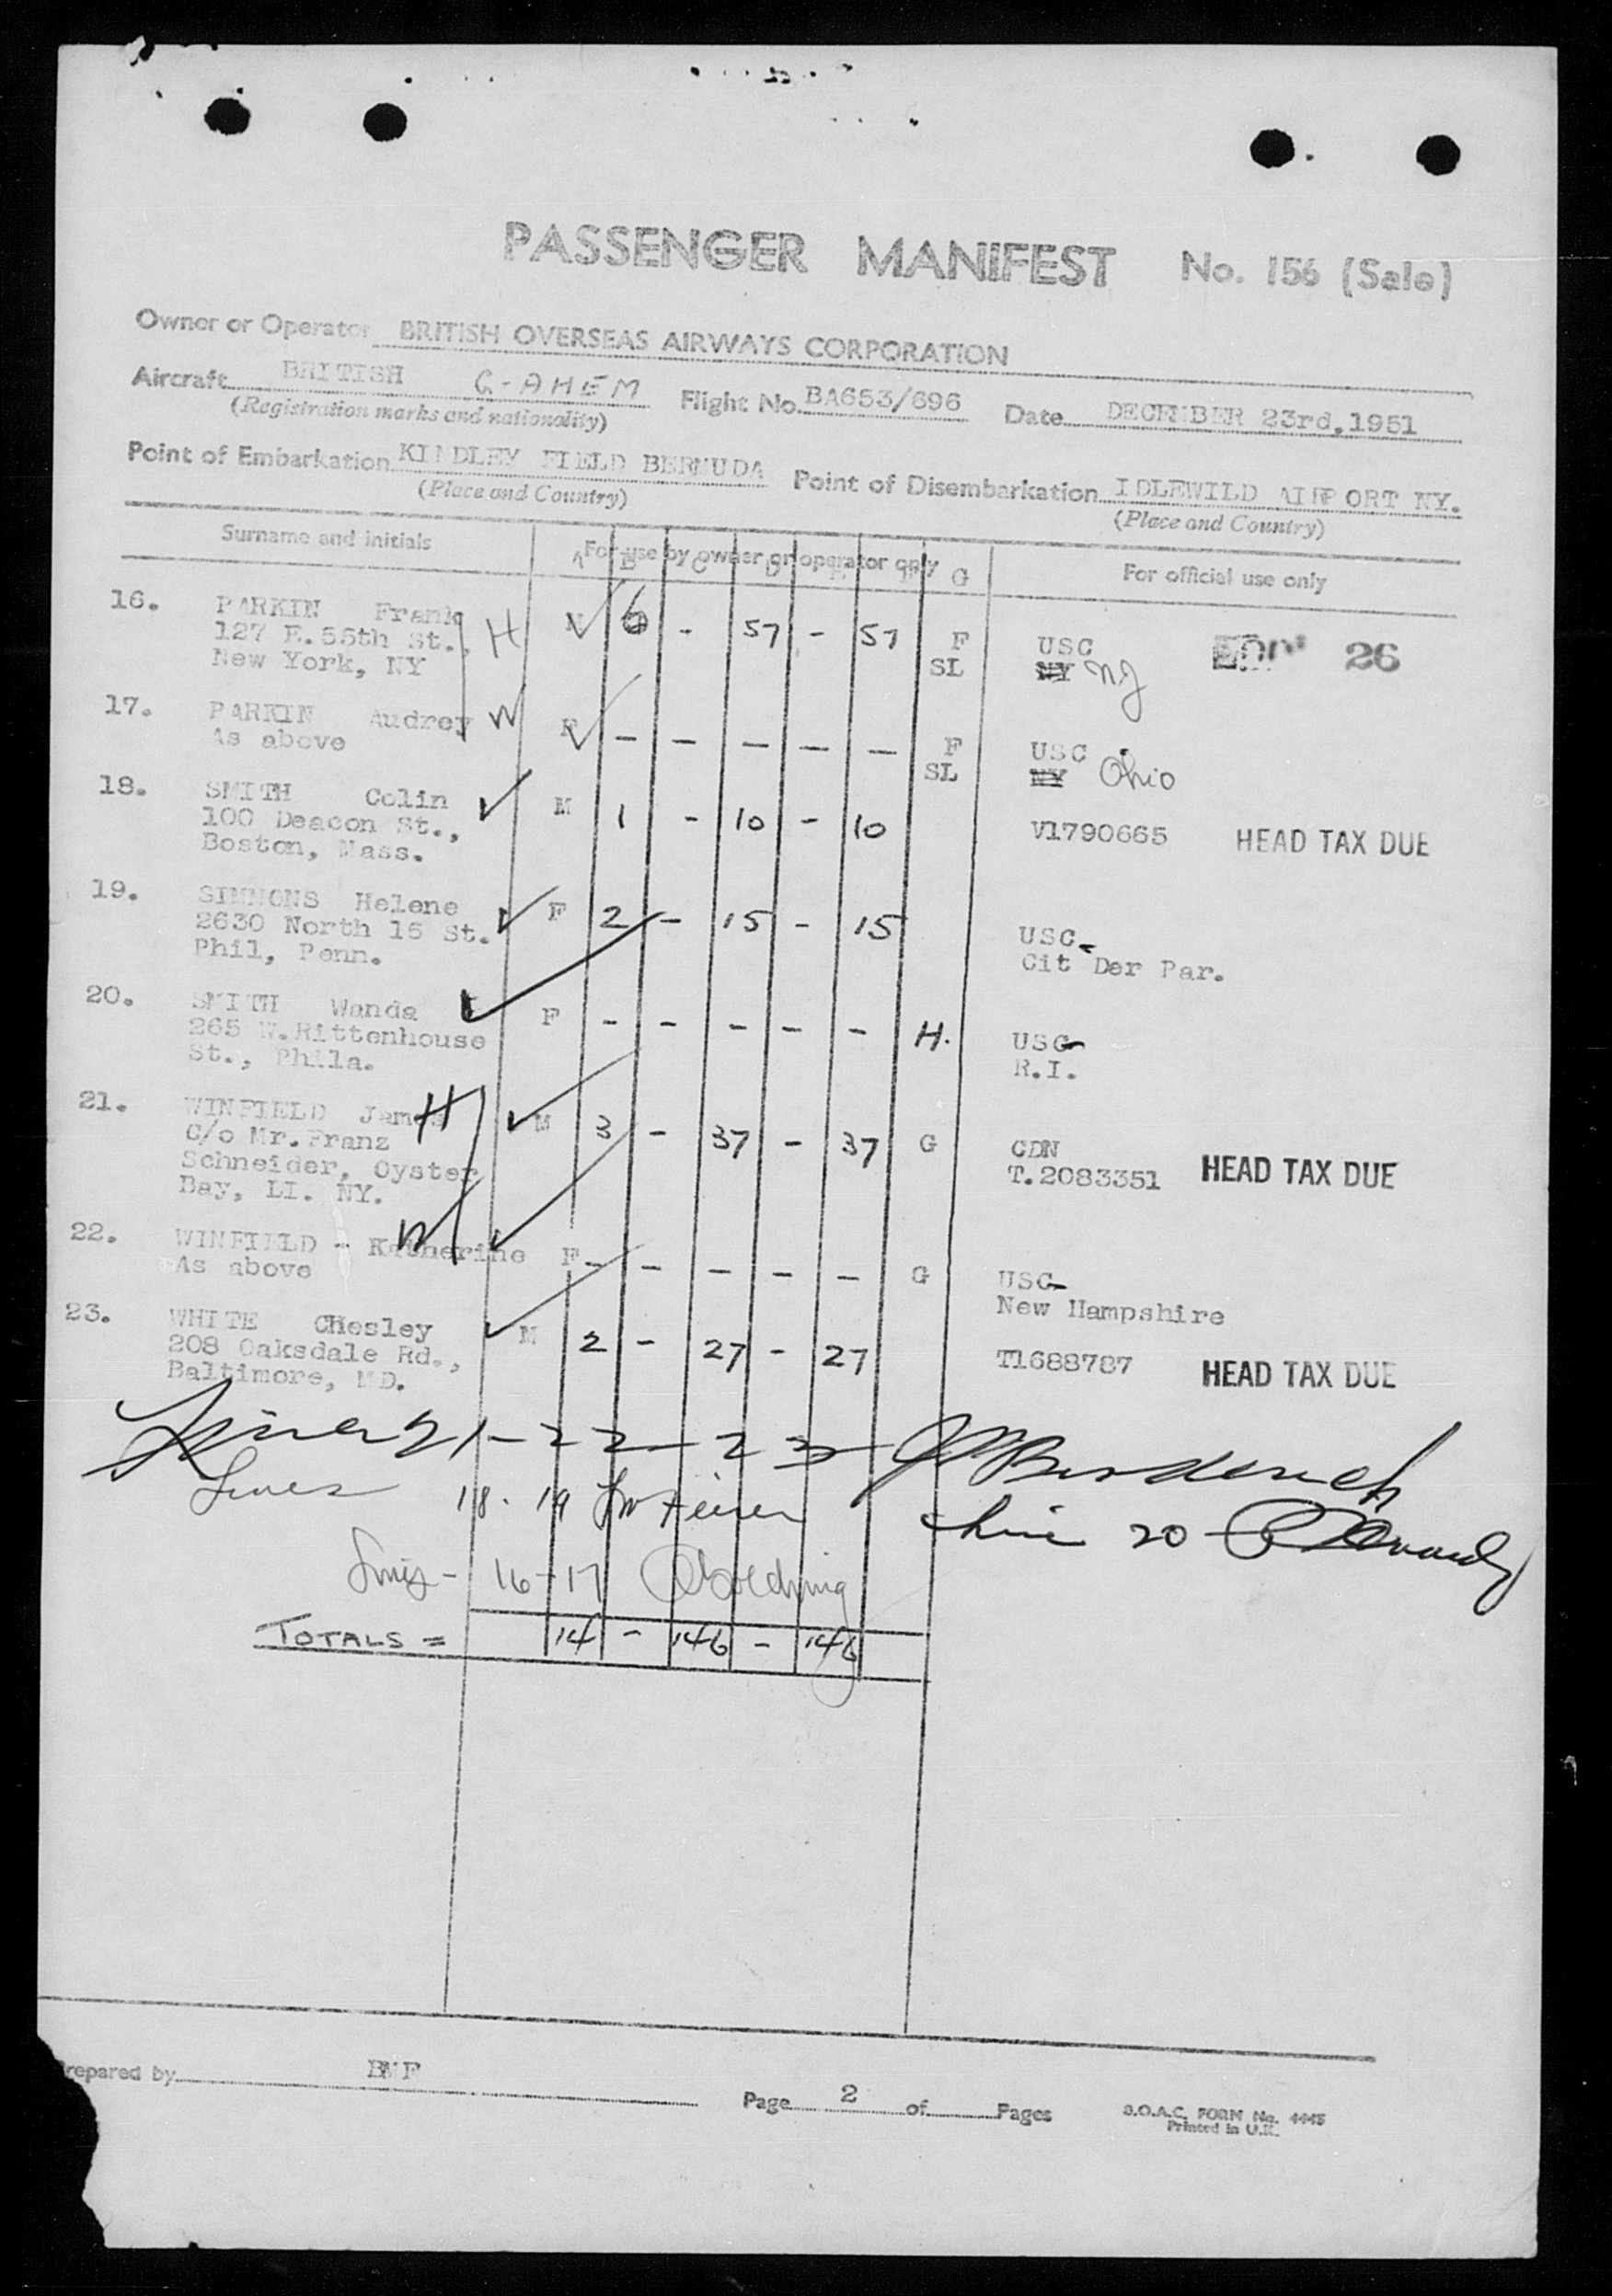 PASSENGER MANIFEST No. 156 (Sale)
Owner or Operator BRITISH OVERSEAS AIRWAYS CORPORATION
Aircraft BRITISH G-AHEM Flight No. BA653/696 Date DECEMBER 23rd,1951
(Registration marks and nationality)
Point of Embarkation KINDLEY FIELD BERMUDA Point of Disembarkation IDLEWILD AIRPORT NY.
(Place and Country) (Place and Country)
Surname and Initials For use by owner or operator only For official use only
A B C D E F G
16. PARKIN Frank H M 6 - 57 - 57 F USC 26
127 E.55th St., SL NY NJ
New York, NY
17. PARKIN Audrey W F - - - - - F USC
As above SL NY Ohio
18. SMITH Colin M 1 - 10 - 10 V1790665 HEAD TAX DUE
100 Deacon St.,
Boston, Mass.
19. SIMMONS Helene F 2 - 15 - 15 USC
2630 North 15 St. Cit Der Par.
Phil, Penn.
20. SMITH Wanda F - - - - - H. USC
265 W.Rittenhouse R.I.
St., Phila.
21. WINFIELD James H M 3 - 37 - 37 G CDN
C/o Mr.Franz T.2083351 HEAD TAX DUE
Schneider, Oyster
Bay, LI. NY.
22. WINFIELD - Katherine W F - - - - - G USC
As above New Hampshire
23. WHITE Chesley M 2 - 27 - 27 T1688787 HEAD TAX DUE
208 Oaksdale Rd.,
Baltimore, MD.
Lines 21-22-23
Lines 18. 19
Line 20
Lines - 16-17
TOTALS = 14 - 146 - 146
Prepared by BMF
Page 2 of Pages
B.O.A.C. FORM No. 4445
Printed in U.K.